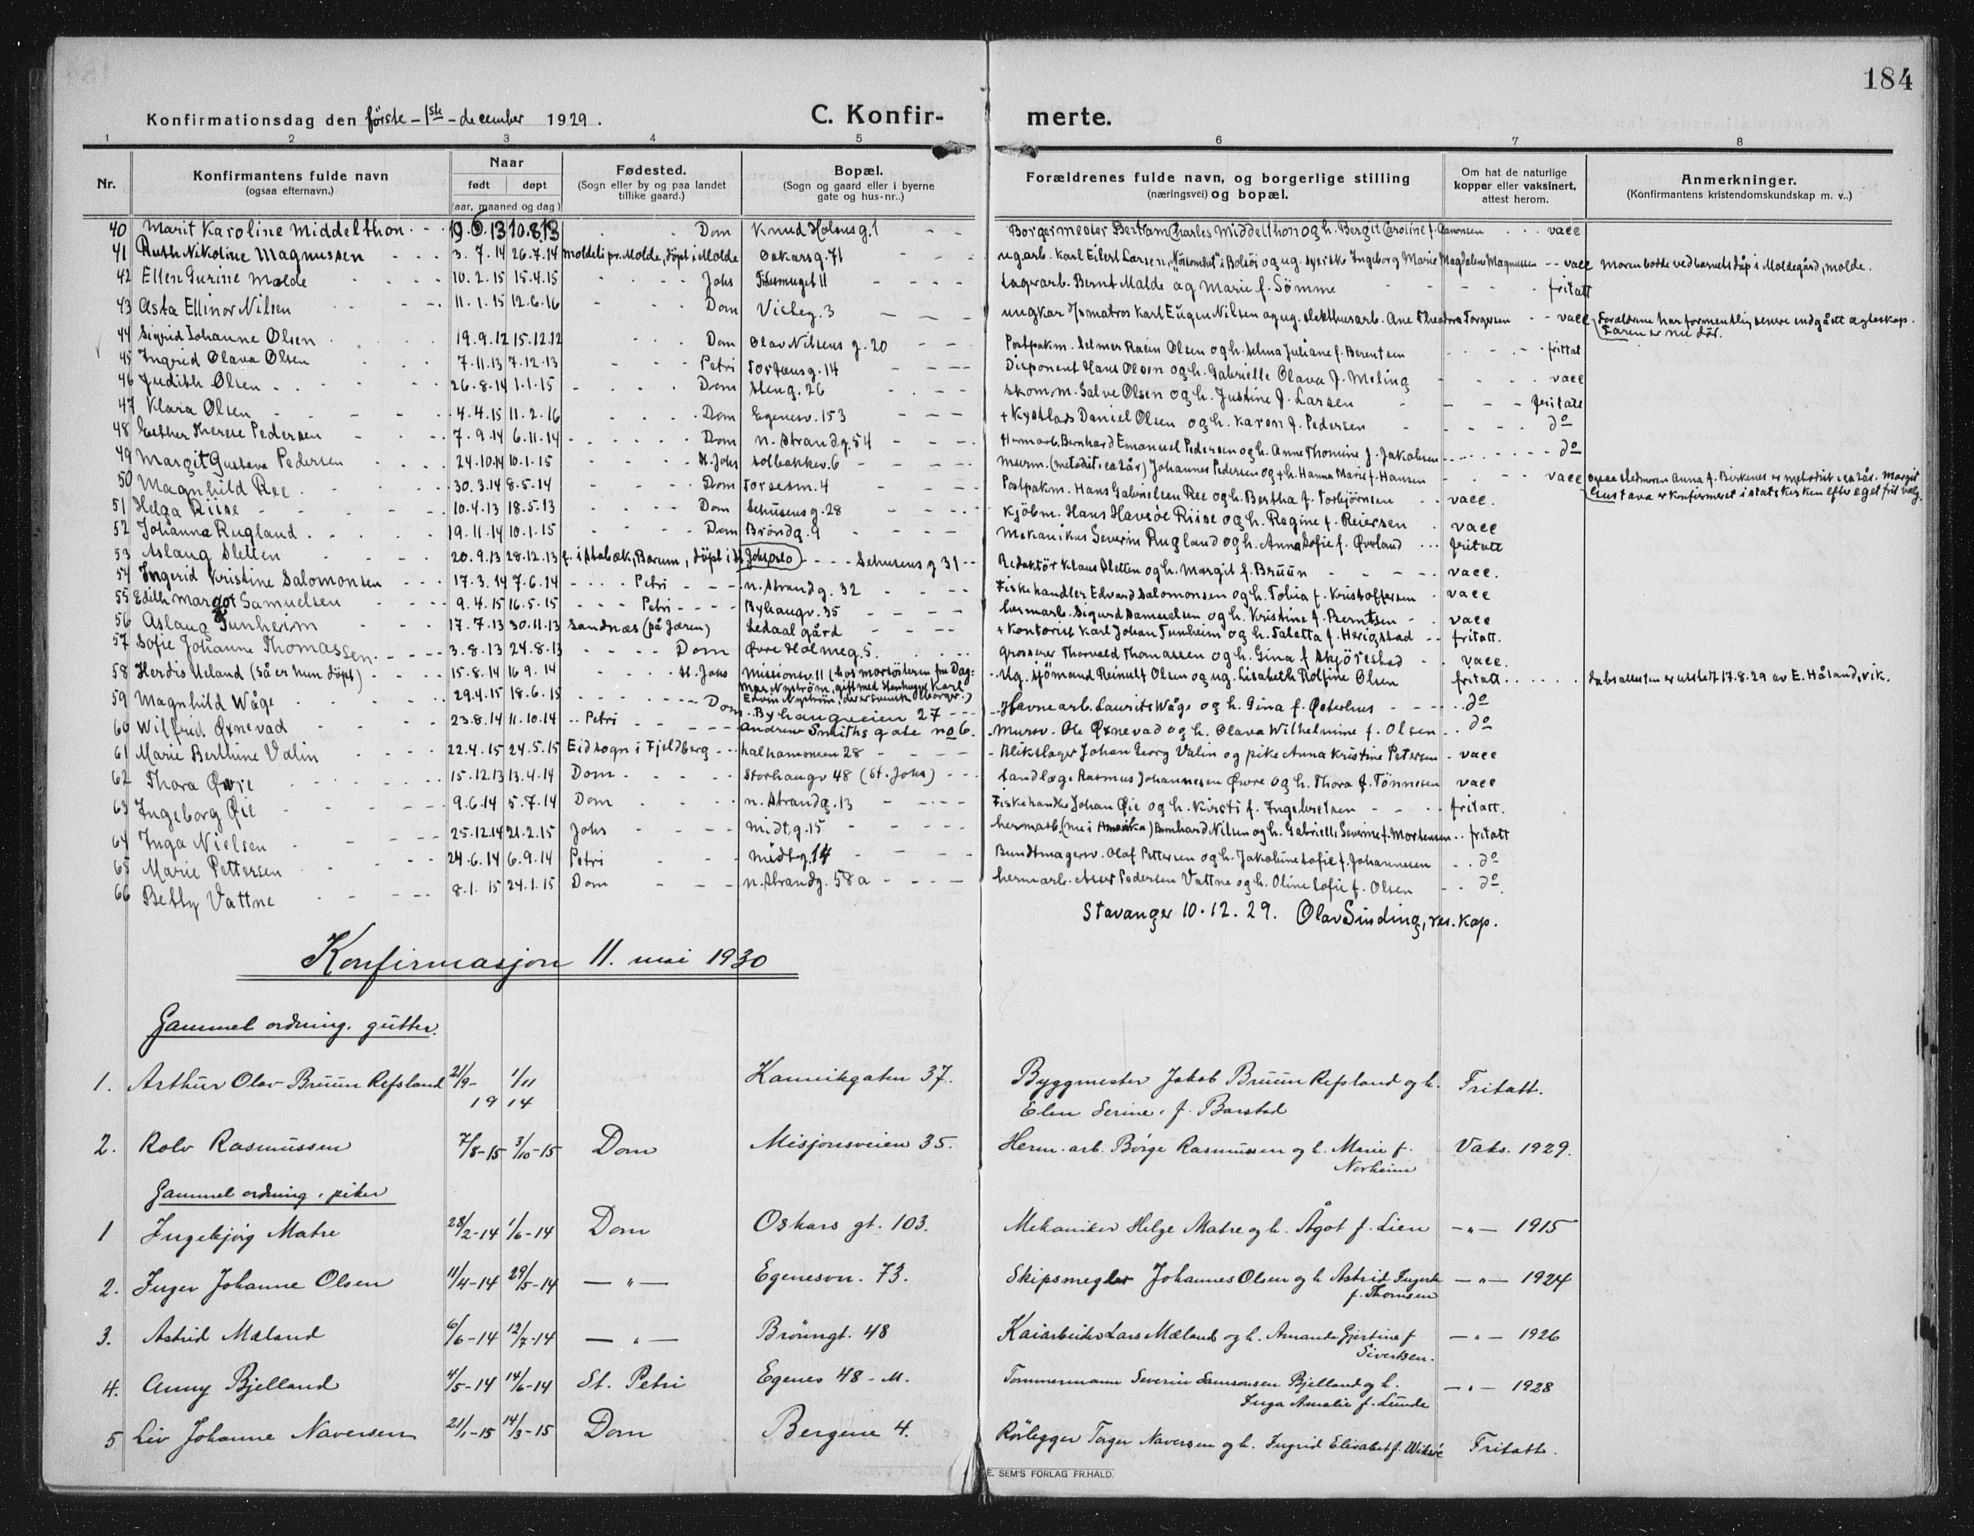 184
Konfirmationsdag den første - 1ste - december 1929.
C. Konfir- merte.
1 2 3 4 5 6 7 8
Nr. Konfirmantens fulde navn (ogsaa efternavn.) Naar født døpt (aar, maaned og dag) Fødested. (Sogn eller by og paa landet tillike gaard.) Bopæl. (Sogn og gaard eller i byerne gate og hus-nr.) Forældrenes fulde navn, og borgerlige stilling (næringsvei) og bopæl. Om hat de naturlige kopper eller vaksinert, attest herom. Anmerkninger. (Konfirmantens kristendomskundskap m. v.)
40 Marit Karoline Middelthon 19.6.13 10.8.13 Dom Knud Holmsg. 1 Borgermester Bertram Charles Middelthon og h. Bergit Caroline f. vacc
41 Ruth Nikoline Magnussen 3.7.14 26.7.14 Moldeli pr. Molde, døpt i Molde Oskarsg. 71 ugarb. Karl Eilert Larsen, i Bolsöi og ug. syerske Ingeborg Marie Magdalene Magnussen vacc Moren bodde ved barnets dåp i Moldegård, Molde.
42 Ellen Gurine Malde 10.2.15 15.4.15 Johs 11 Lagerarb. Bernt Malde og Marie f. Sömme fritatt
43 Asta Ellinor Nilsen 11.1.15 12.6.16 Dom Visteg. 3 ungkar matros Karl Eugen Nilsen og ug. Ane Theodora Torgersen vacc Foreldrene har formentlig senere indgått egteskap. Faren er nu död.
44 Sigrid Johanne Olsen 19.9.12 15.12.12 Dom Olav Nilsens g. 20 Postpakm. Selmer Olsen og h. Selma Juliane f. Berentsen fritat
45 Ingrid Olava Olsen 7.11.13 7.12.13 Petri Torfæusg. 14 Disponent Hans Olsen og h. Gabrielle Olava f. Meling vacc
46 Judith Olsen 26.8.14 1.1.15 Dom Steng. 26 Skom. m. Salve Olsen og h. Justine f. Larsen fritatt
47 Klara Olsen 4.4.15 11.2.16 Dom Egenesv. 153 + Kystlods Daniel Olsen og h. Karen f. Pedersen do
48 Esther Therese Pedersen 7.9.14 6.11.14 Dom n. Strandg. 54 Hermarb. Bernhard Emanuel Pedersen og h. Anne Thomine f. Jakobsen do
49 Margit Gustava Pedersen 24.10.14 10.1.15 St. Johs Solbakkev. 6 Murm. (metodist i ca 2 år) Johannes Pedersen og + h. Hanna Marie f. Hansen vacc Også stedmoren Anna f. Birkenes er metodist i ca 2 år. Margit Gustava er konfirmeret i statskirken efter eget frit valg.
50 Magnhild Ree 30.3.14 8.5.14 Dom 4 Postpakm. Hans Gabrielsen Ree og h. Bertha f. Torbjørnsen vacc.
51 Helga Riise 10.4.13 18.5.13 Dom Sehusensg. 28 Kjöbm. Hans Havsöe Riise og h. Regine f. Reiersen vacc
52 Johanna Rugland 19.11.14 10.1.15 Dom Bröndg. 9 Mekanikus Severin Rugland og h. Anna Sofie f. Øvrland fritatt
53 Aslaug Sletten 20.9.13 28.12.13 f. i Stabæk, Bærum, döpt i St. Johs Oslo Sehusens g 31 Redaktör Klaus Sletten og h. Margit f. Bruun vacc.
54 Ingerid Kristine Salomonsen 17.3.14 7.6.14 Petri n. Strandg. 32 Fiskehandler Edvard Salomonsen og h. Tobia f. Kristoffersen vacc
55 Edith Margot Samuelsen 9.4.15 16.5.15 Petri Byhaugv. 35 hermarb. Sigurd Samuelsen og h. Kristine f. Berntsen vacc
56 Aslaug Tunheim 17.7.13 30.11.13 Sandnæs (på Jæren) Ledaal gård + Kontorist Karl Johan Tunheim og h. Taletta f. Herigstad fritatt.
57 Sofie Johanne Thomassen 3.8.13 24.8.13 Dom Øvre Holmeg. 5. grosserer Thorvald Thomassen og h. Gina f. Skjörestad vacc.
58 Herdis Ueland (Så er hun döpt) 15.8.14 16.9.14 St. Johs Missionsv. 11 (hos morsösteren fru Dagmar Nyström, gift med Karl Edvin Nyström, der er svensk borger.) Ug. sjömand Reinult Olsen og ug. Lisabeth Rolfine Olsen fritatt Dåbsattesten er utstedt 17.8.29 av E. Håland, vik.
59 Magnhild Våge 29.4.15 18.6.15 Dom Byhaugveien 27 Havnearb. Laurits Våge og h. Gina f. Østerhus do
60 Wilfrid. Øxnevad 23.8.14 11.10.14 Petri Andrew Smiths gate no 6. Murer. Ole Øxnevad og h. Olava Wilhelmine f. Olsen do
61 Marie Berthine Valin 22.4.15 24.5.15 Eid sogn i Fjeldberg Kalhammeren 28 Blikslager Johan Georg Valin og pike Anna Kristine Petersen vacc
62 Thora Øvre 15.12.13 13.4.14 Dom Storhaugv 48 (St. Johs) Tandlæge Rasmus Johannesen Øvre og h. Thora f. Tönnesen vacc
63 Ingeborg Øie 9.6.14 5.7.14 Dom n. Strandg. 13 Fiskehandl. Johan Øie og h. Kirsti f. Ingebretsen fritatt.
64 Inga Nielsen 25.12.14 21.2.15 Johs Midtg. 15 hermarb. (nu i Amerika) Bernhard Nilsen og h. Gabrielle Severine f. Mortensen fritatt
65 Marie Pettersen 24.6.14 6.9.14 Petri Midtg. 14 Bundtmagersv. Olaf Pettersen og h. Jakobine Sofie f. Johannesen do
66 Betty Vattne 8.1.15 24.1.15 Dom n. Strandg. 58a hermarb. Asser Pedersen Vattne og h. Oline Sofie f. Olsen do
Stavanger 10.12.29. Olav Sinding, res. kap.
Konfirmasjon 11. mai 1930
Gammel ordning. gutter.
1. Arthur Olav Bruun Refsland 21/9- 1/11 1914 Kannikgaten 37. Byggmester Jakob Bruun Refsland og h. Elen Serine f. Barstad Fritatt.
2. Rolv Rasmussen 7/8-15 3/10-15 Dom Misjonsveien 35. Herm. arb. Börge Rasmussen og h. Marie f. Norheim Vaks. 1929.
Gammel ordning, piker
1 Ingebjörg Matre 28/2-14 1/6-14 Dom Oskars gt. 103. Mekaniker Helge Matre og h. Ågot f. Lien — " — 1915
2. Inger Johanne Olsen 11/4-14 29/5-14 — " — Egenesvn. 73. Skipsmegler Johannes Olsen og h Astrid Ingerte f. Thomsen — " — 1924
3. Astrid Mæland 6/6-14 12/7-14 — " — Brönngt. 48 Kaiarbeider Lars Mæland og h. Amanda Gjertine f Sivertsen. — " — 1926
4. Anny Bjelland 4/5-14 14/6-14 St. Petri Egenes 48 - M. Tömmermann Severin Samsonsen Bjelland og h. Inga Amalie f. Lunde — " — 1928
5 Liv Johanne Naversen 21/1-15 14/3-15 Dom Bergene 4. Rörlegger Torger Naversen og h. Ingrid Elisabet f. Fritatt.
E. SEM'S FORLAG FR.HALD.